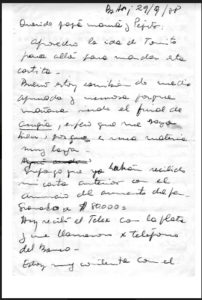 Bs As, 29/9/88
Querido papá mamá y Pepito.
Aprovecho la ida de Tonito
para allá para mandar esta
cartita.
Bueno estoy también de medio
apurada y nerviosa porque
mañana rindo el final de
espero que me vaya
bien. es una materia
muy larga.
Supongo que ya habrán recibido
mi carta anterior con el
anuncio del aumento de
a $
Hoy recibí el Telex con la plata
y me llamaron x teléfono
del Banco.
Estoy muy contenta con el